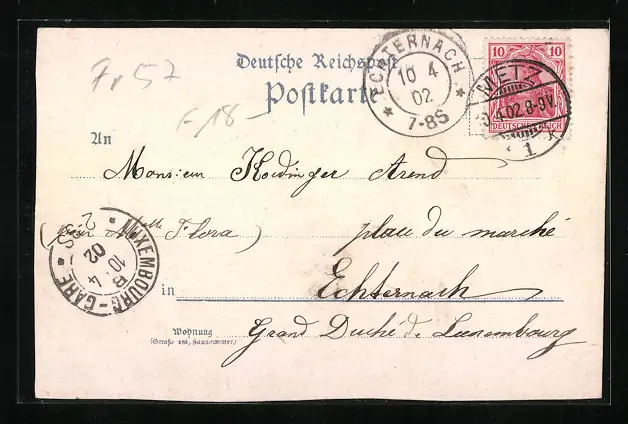 Deutsche Reichspost
Postkarte
Fr 57
F 18-
10
10
DEUTSCHES REICH
METZ
02.8-9V.
1
ECHTERNACH
10 4
02
7-8S
An
Monsieur Arend
(pour Melle Flora)
place du marché
LUXEMBOURG-GARE
10.4
02
in
Echternach
Wohnung
(Straße und Hausnummer)
Grand Duché de Luxembourg